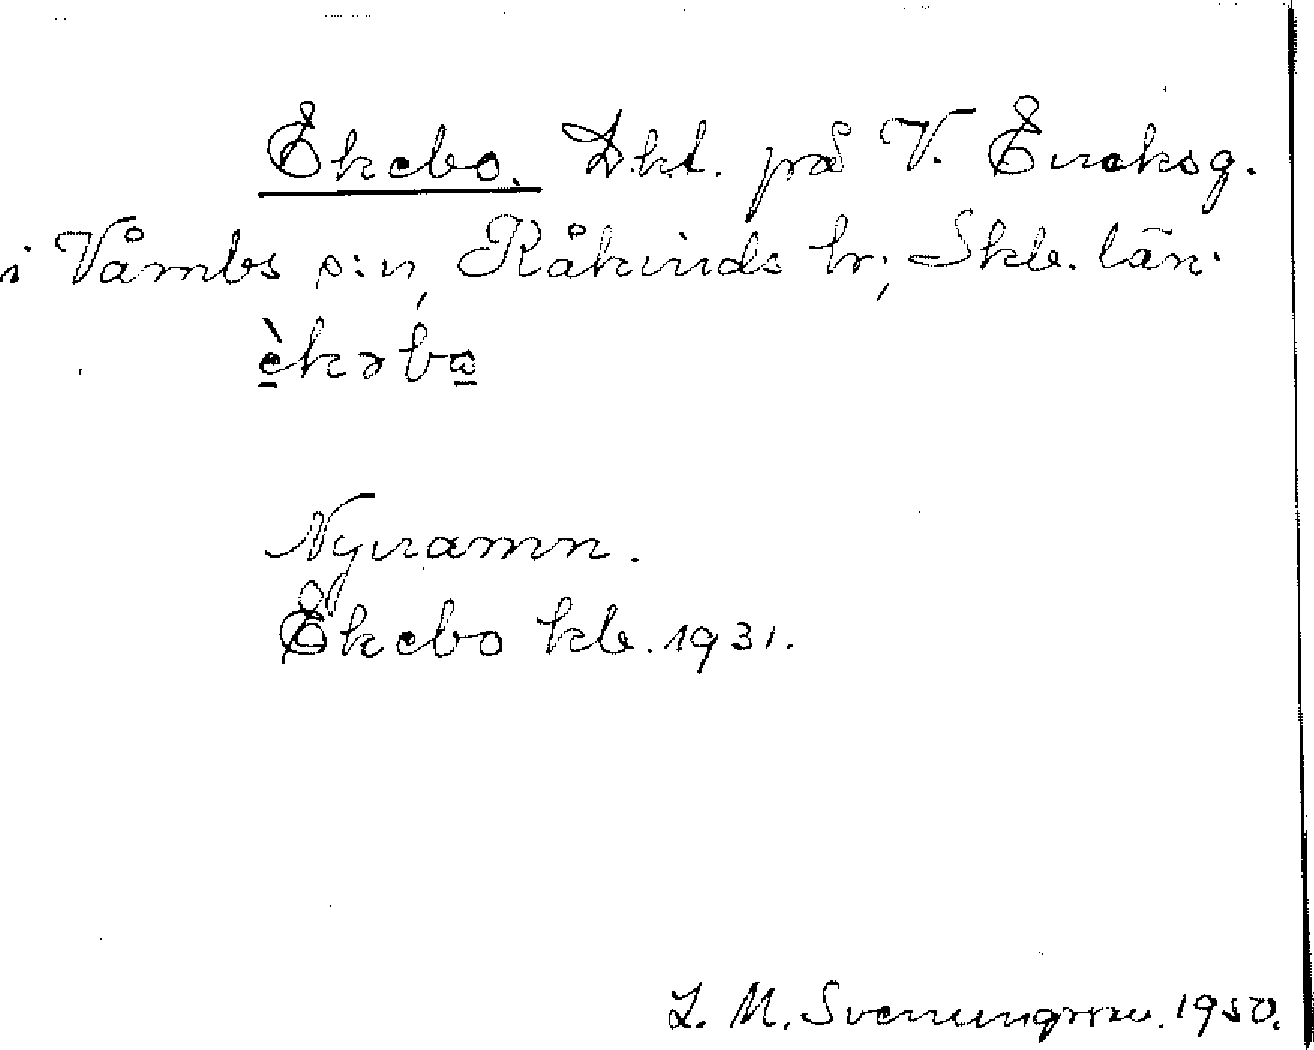 Ekebo. Dkl. på V. Eneksg.
i Våmbs s:n, Kåkinds hr; Skb. län.
èkəbo
Nynamn.
Ekebo kb. 1931.
L. M. Svenungsson. 1950.